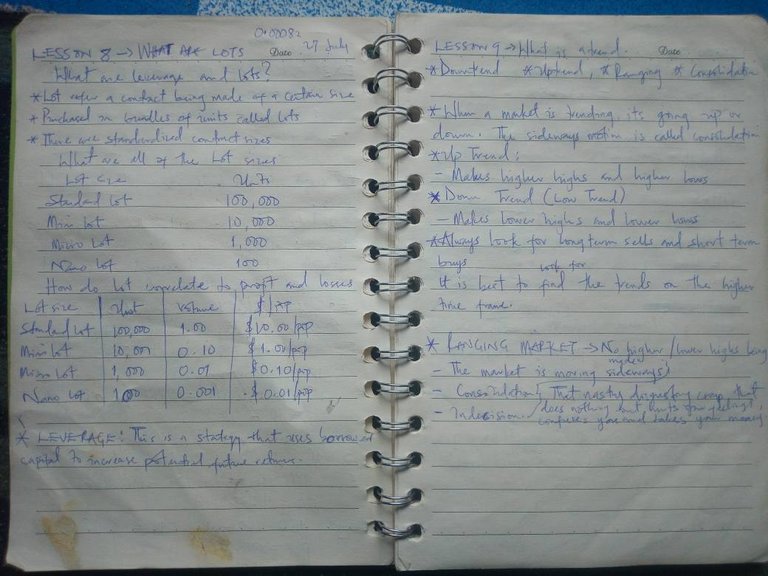 0.00082
LESSON 8 → WHAT ARE LOTS Date 27 July
What are leverage and lots?
* Lot refer a contract being made of a certain size
* Purchased in bundles of units called lots
* There are standardized contract sizes
What are all of the Lot sizes
Lot size Units
Standard Lot 100,000
Mini Lot 10,000
Micro Lot 1,000
Nano Lot 100
How do Lot correlate to profit and losses
Lot size Unit Volume $/pip
Standard Lot 100,000 1.00 $10.00/pip
Mini Lot 10,000 0.10 $1.00/pip
Micro Lot 1,000 0.01 $0.10/pip
Nano Lot 100 0.001 $0.01/pip
* LEVERAGE: This is a strategy that uses borrowed
capital to increase potential future returns.
LESSON 9 → What is a trend. Date
* Downtrend * Uptrend, * Ranging * Consolidation
* When a market is trending its going up or
down. The sideways motion is called consolidation
* Up Trend:
- Makes higher highs and higher lows
* Down Trend (Low Trend)
- Makes lower highs and lower lows
* Always look for long term sells and short term
buys look for
It is best to find the trends on the higher
time frame.
* RANGING MARKET → No higher/lower highs being
made
- The market is moving sideways
- Consolidation That nasty disgusting creep that
- Indecision. does nothing but hurts your feelings,
confuses you and takes your money